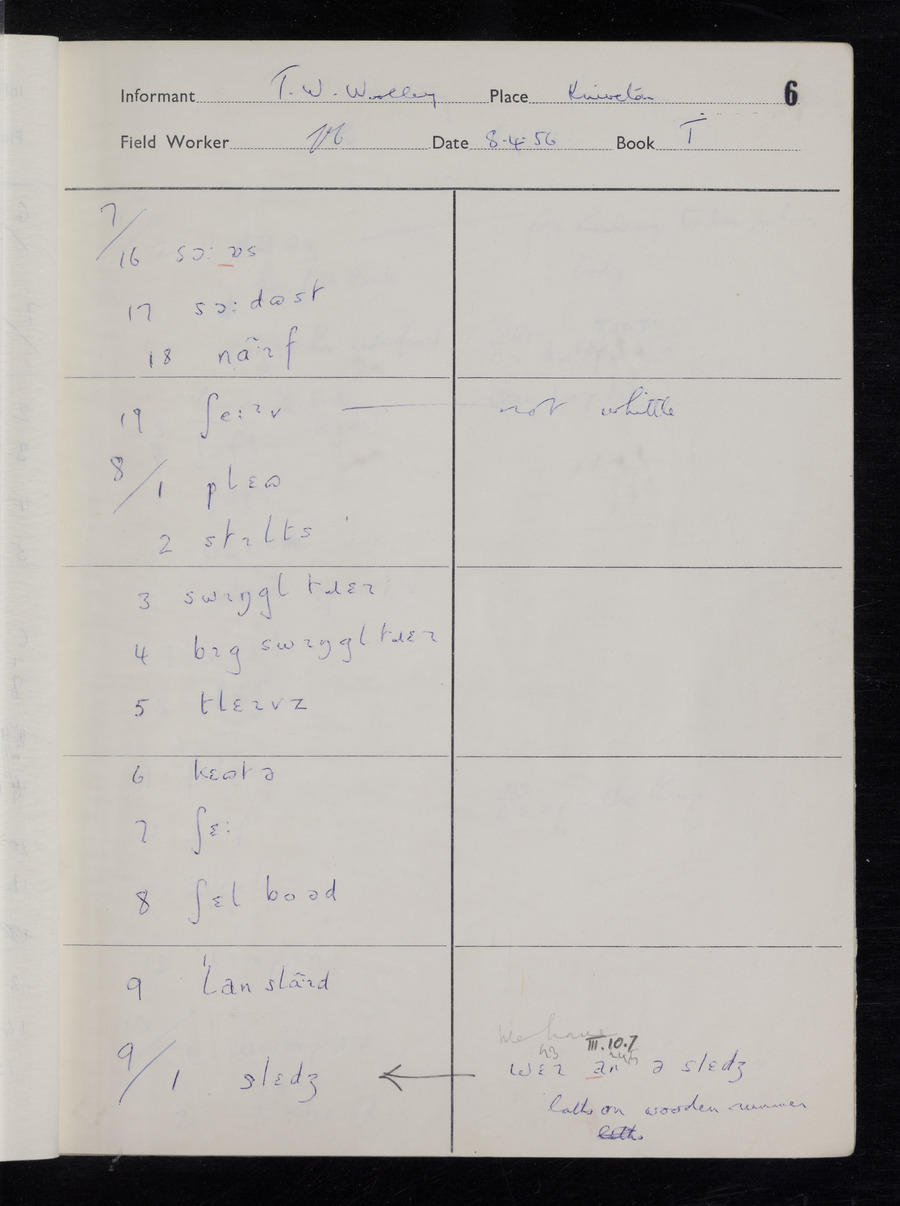 Informant T. W. Woolley Place Kniveton 6
Field Worker Date 8.4.56 Book I
7/16 sɔ: ɒs
17 sɔ: dɷst
18 nãɪf
19 ʃe:ɪv not whittle
8/1 plɛɷ
2 stɪlts
3 swɪŋgl tɹɛɪ
4 bɪg swɪŋgl tɹɛɪ
5 tlɛɪvz
6 kɛɷtə
7 ʃɛ:
8 ʃɛl boəd
9 ˈlan slãɪd
We have
43 III.10.7
9/1 slɛdʒ ← wɛɪ an ə slɛdʒ
laths on wooden runner